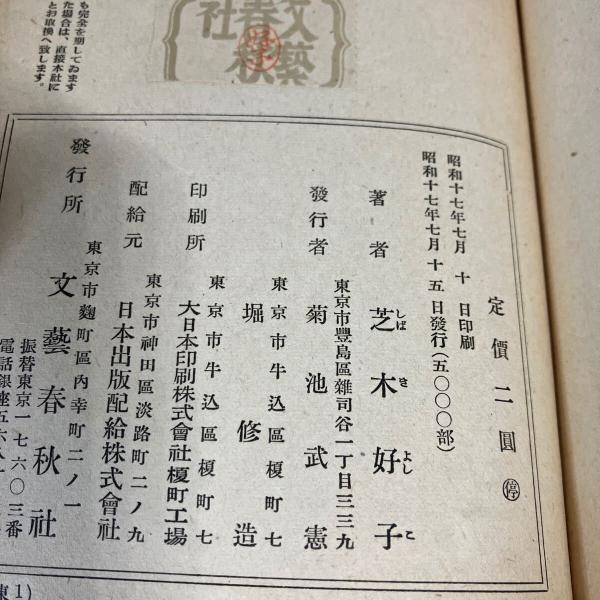 も完全を期してゐます
た場合は、直接本社に
とお取換へ致します。
文藝
春秋
社
定價二圓 停
昭和十七年七月 十 日印刷
昭和十七年七月十五日發行(五〇〇〇部)
著者 芝木好子
しばきよしこ
東京市豐島區雜司谷一丁目三三九
發行者 菊池武憲
東京市牛込區榎町七
堀修造
東京市牛込區榎町七
印刷所 大日本印刷株式會社榎町工場
東京市神田區淡路町二ノ九
配給元 日本出版配給株式會社
東京市麴町區内幸町二ノ一
發行所 文藝春秋社
振替東京一七六〇三番
電話銀座五六八一
東1)